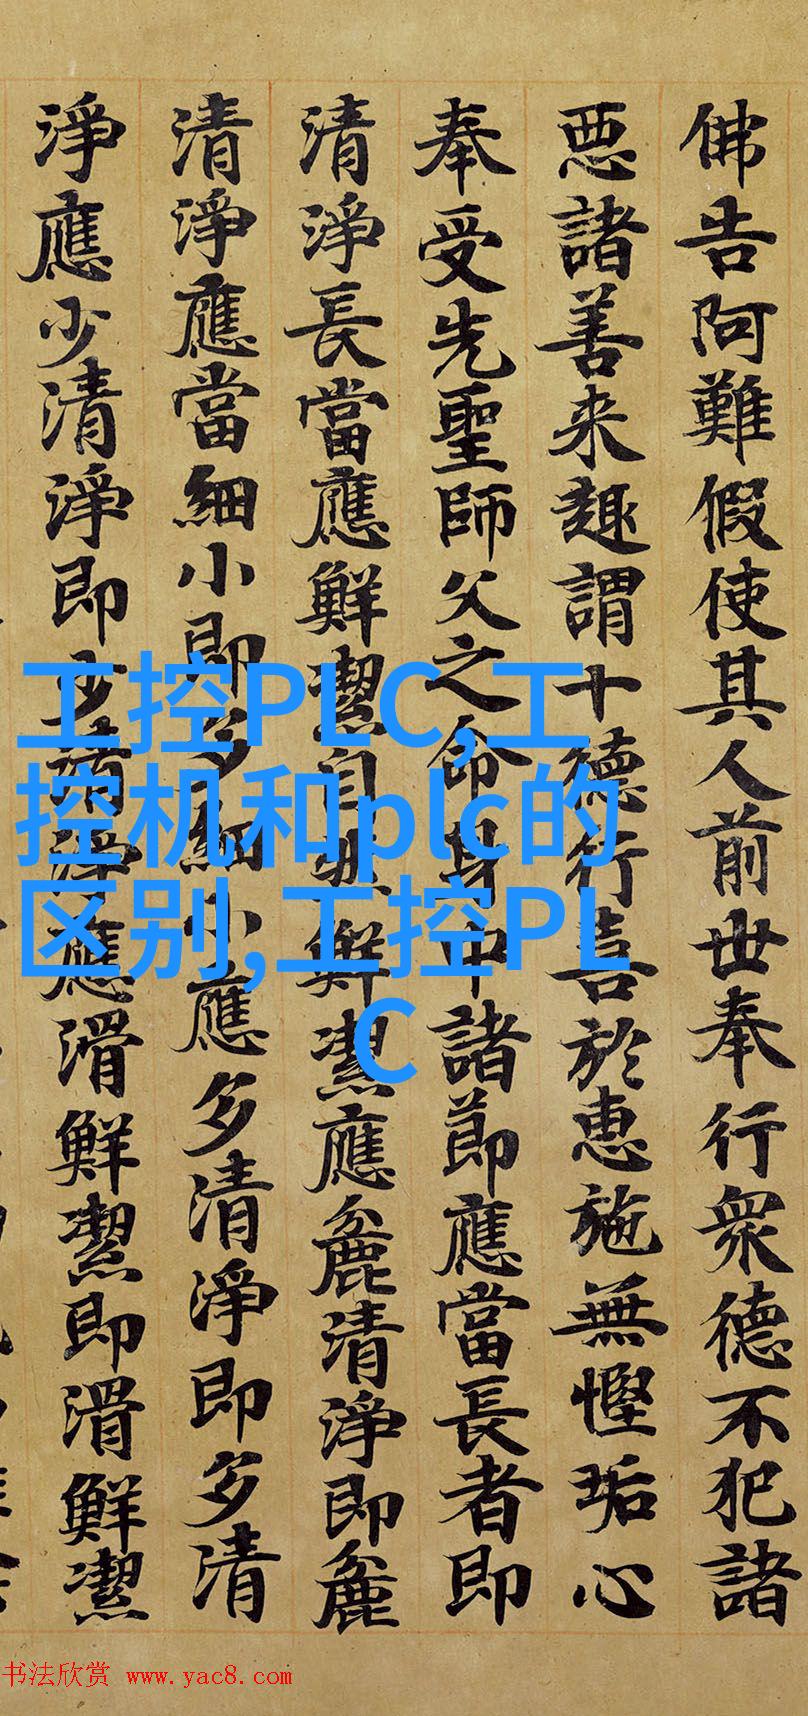 佛告阿難假使其人前世奉行衆德不犯諸
惡諸善来趣謂十德行喜於惠施無慳垢心
奉受先聖師父之命身中諸節應當長者即
清淨長當應鮮潔自然鮮潔應麁清淨即麁
清淨應當細小即多細小應多清淨即多清
淨應少清淨即少清淨應滑鮮潔即滑鮮潔
工控PLC,工
控机和plc的
区别,工控PL
C
书法欣赏 www.yac8.com